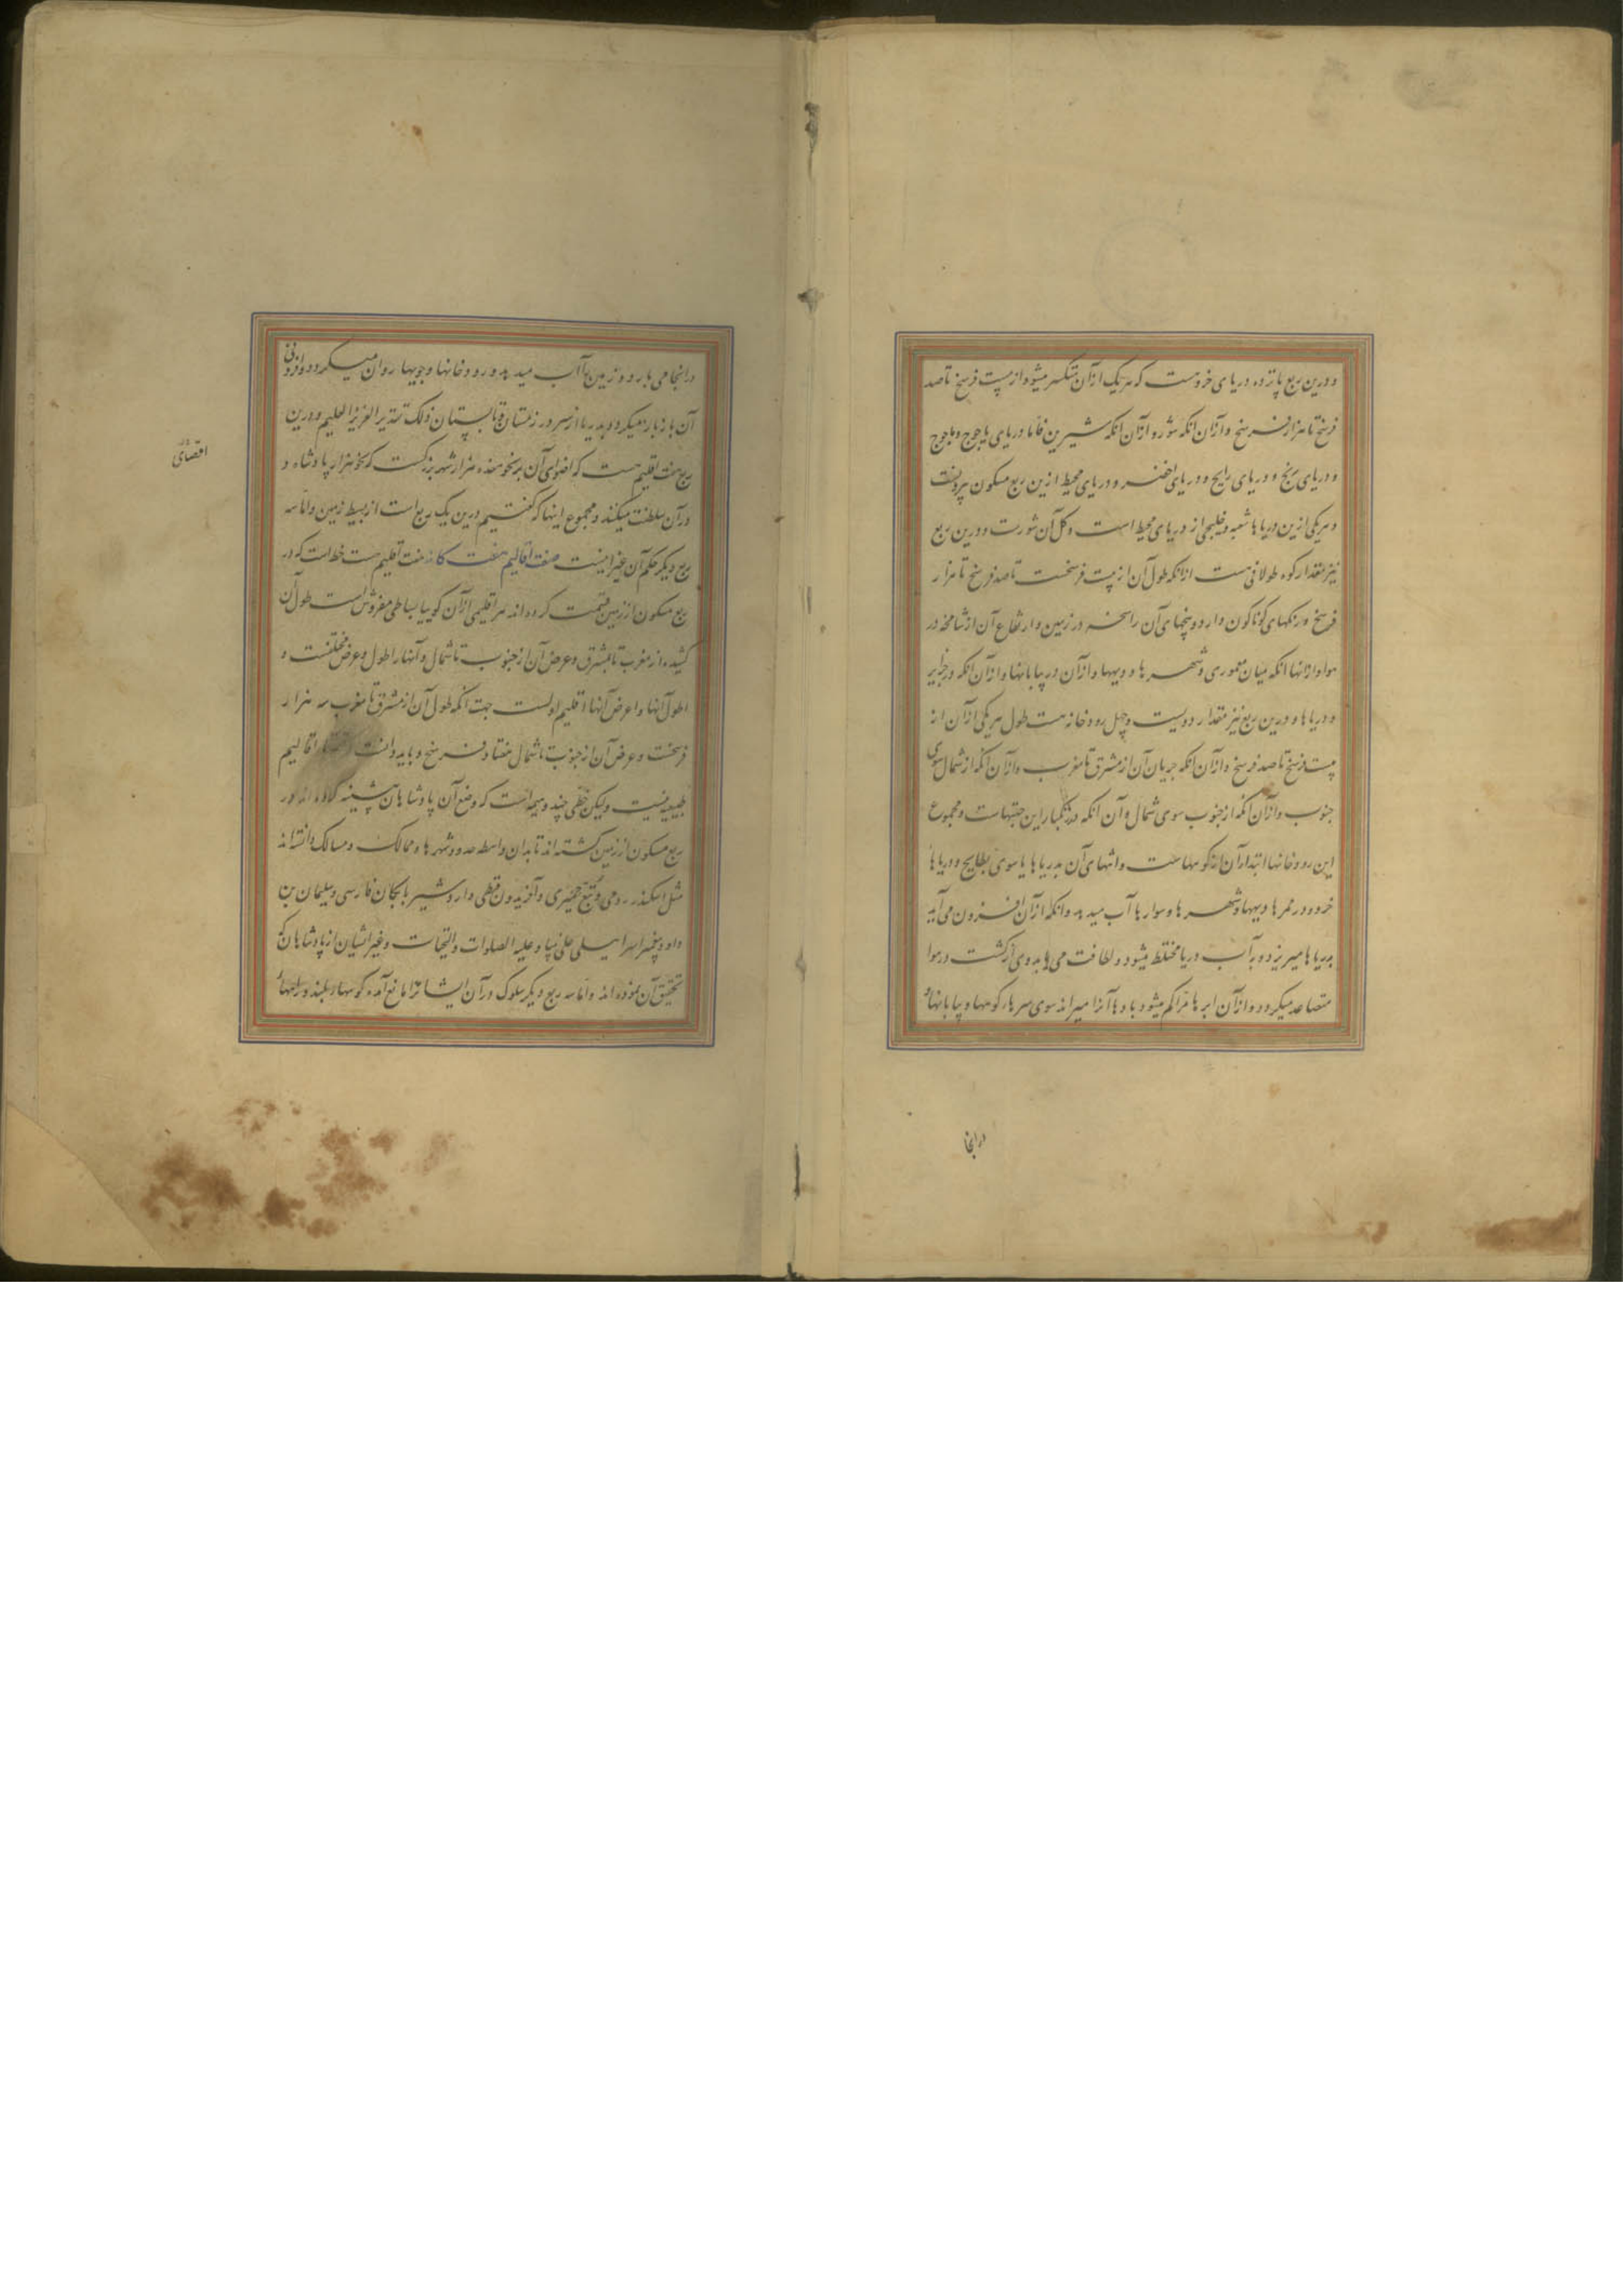 و درین ربع پانزده دریای خرد هست که هر یک از آن متکسر میشود از بیست فرسخ تا صد
فرسخ تا هزار فرسخ و از آن آنکه شور و از آن آنکه شیرین فاما دریای یاجوج و ماجوج
و دریای زنج و دریای رایج و دریای اخضر و دریای محیط ازین ربع مسکون بیرونست
و هر یکی ازین دریاها شعبه و خلیجی از دریای محیط است و کل آن شورست و درین ربع
نیز مقدار کوه طولانی هست از آنکه طول آن از بیست فرسخست تا صد فرسخ تا هزار
فرسخ و رنگهای گوناگون دارد و بیخهای آن راسخه در زمین و ارتفاع آن از شامخه در
هوا و از انها انکه میان معموری و شهرها و دیهها و از آن در بیابانها و از آن آنکه در جزایر
و دریاها و درین ربع نیز مقدار دویست و چهل رودخانه هست طول هر یکی از آن از
بیست فرسخ تا صد فرسخ و از آن آنکه جریان آن از مشرق تا مغرب و از آن آنکه از شمال سوی
جنوب و از آن آنکه از جنوب سوی شمال و آن انکه در نکبار این جبتهاست و مجموع
این رودخانها ابتدا آن از کوهها است و انتهای آن بدریاها یا سوی بطایح و دریاها
خرد و در ممرها دیهها و شهرها و سوارها آب میدهد و انکه از آن افزون می آید
بدریاها میریزد و بآب دریا مختلط میشود و لطافت می یابد وی از گشت در هوا
متصاعد میگردد و از آن ابرها متراکم میشود بادها آنرا میراند سوی سرهای کوهها و بیابانها و
در انجا
در انجا می بارد و زمین را آب میدهد و رودخانها و جویها روان میگردد و افزونی
آن باز باز میگردد بدریا از سر در زمستان و تابستان ذلک تقدیر العزیز العلیم و درین
ربع هفت اقلیم هست که احتوای آن بر نحو هفده هزار شهر بزرگست که نحو هزار پادشاه و
در آن سلطنت میکنند و مجموع اینها که گفتیم درین یک ربع است از بسیط زمین و اما سه
ربع دیگر حکم آن غیر اینست صفت اقالیم هفت گانه هفت اقلیم هست خط است که در
ربع مسکون از زمین قسمت کرده اند هر اقلیمی از آن گوییا بساطی مفروش است طول آن
کشیده از مغرب تا بمشرق و عرض آن از جنوب تا شمال و آنها را طول و عرض مختلفست و
اطول آنها و اعرض آنها اقلیم اولست جهت آنکه طول آن از مشرق تا مغرب سه هزار
فرسخست و عرض آن از جنوب تا شمال هفتاد فرسخ و باید دانست اقالیم
طبیعیه نیست ولیکن خطی چند وهیمه است که وضع آن پادشاهان پیشینه کرده اند در
ربع مسکون از زمین گشته اند تا بدان واسطه حدود شهرها و ممالک و مسالک دانسته اند
مثل اسکندر رومی و تبع حمیری و آفریدون قبطی و اردشیر بابکان فارسی و سلیمان بن
داود پیغمبر اسراییلی علی نبینا و علیه الصلوات و التحیات و غیر ایشان از پادشاهان که
تحقیق آن نموده اند و اما سه ربع دیگر سلوک در آن ایشانرا مانع آمده کوهها بلند و راهها
اقصای